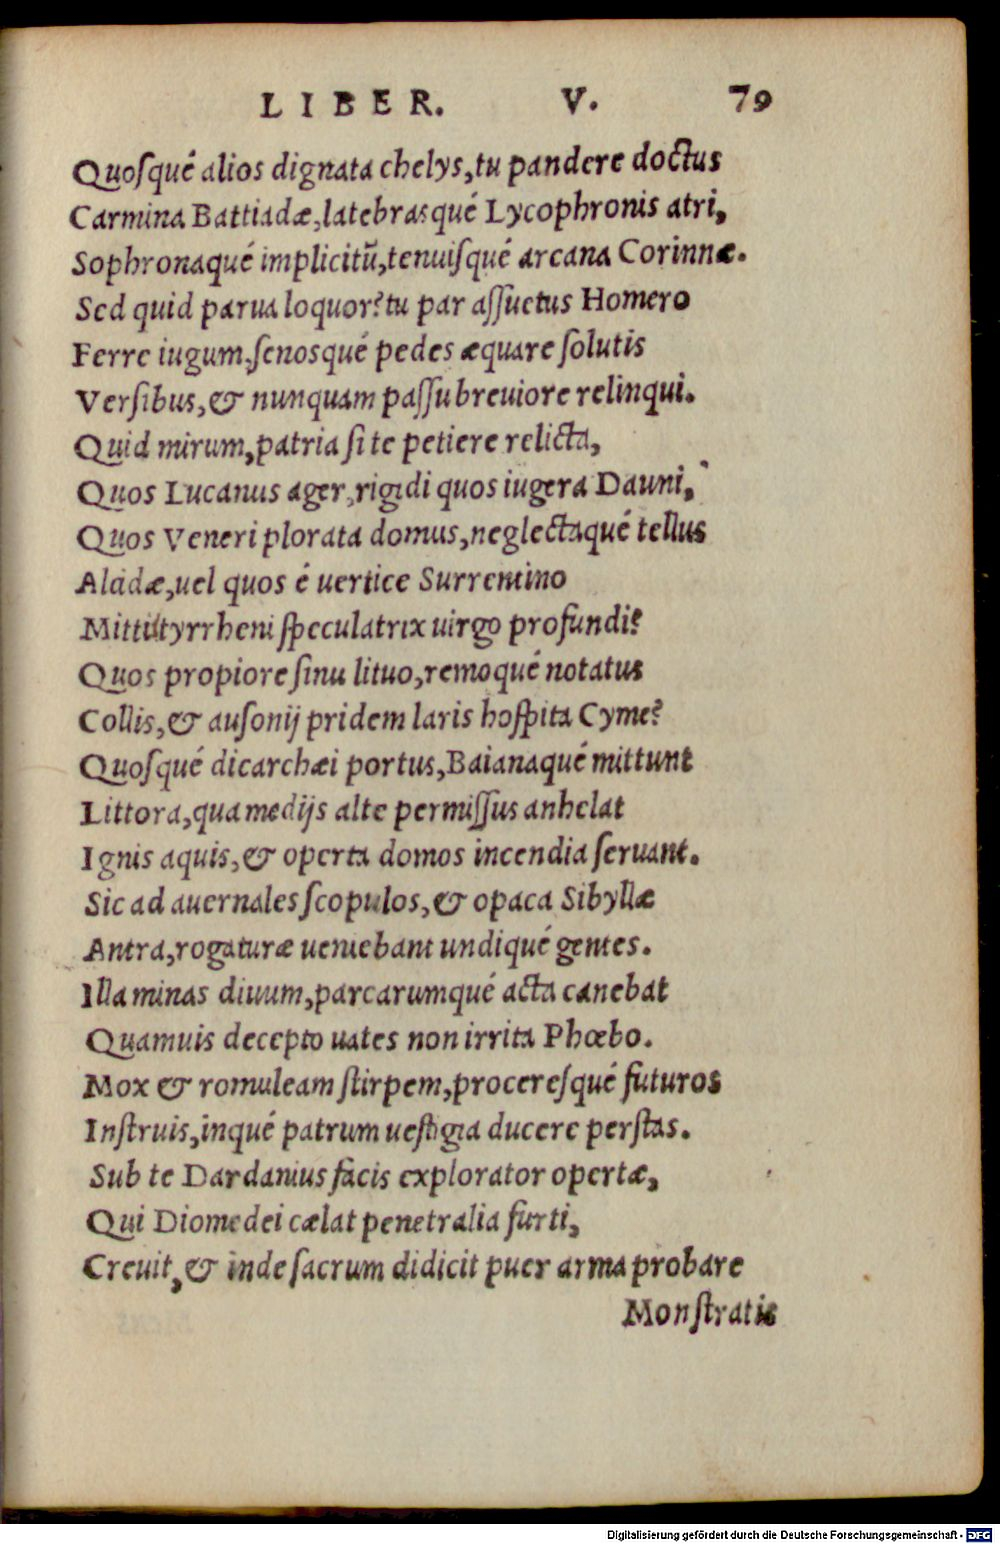 LIBER. V. 79
Quoſqué alios dignata chelys, tu pandere doctus
Carmina Battiadæ, latebrasqué Lycophronis atri,
Sophronaqué implicitū, tenuiſqué arcana Corinnæ.
Sed quid parua loquor? tu par aſſuetus Homero
Ferre iugum, ſenosqué pedes æquare ſolutis
Verſibus, & nunquam paſſu breuiore relinqui.
Quid mirum, patria ſi te petiere relicta,
Quos Lucanus ager, rigidi quos iugera Dauni,
Quos Veneri plorata domus, neglectaqué tellus
Alcidæ, uel quos é uertice Surrentino
Mittit tyrrheni ſpeculatrix uirgo profundi?
Quos propiore ſinu lituo, remoqué notatus
Collis, & auſonij pridem laris hoſpita Cyme?
Quoſqué dicarchæi portus, Baianaqué mittunt
Littora, qua medijs alte permiſſus anhelat
Ignis aquis, & operta domos incendia ſeruant.
Sic ad auernales ſcopulos, & opaca Sibyllæ
Antra, rogaturæ ueniebant undiqué gentes.
Illa minas diuum, parcarumqué acta canebat
Quamuis decepto uates non irrita Phœbo.
Mox & romuleam ſtirpem, procereſqué futuros
Inſtruis, inqué patrum ueſtigia ducere perſtas.
Sub te Dardanius facis explorator opertæ,
Qui Diomedei cælat penetralia furti,
Creuit, & inde ſacrum didicit puer arma probare
Monſtratis
Digitalisierung gefördert durch die Deutsche Forschungsgemeinschaft - DFG